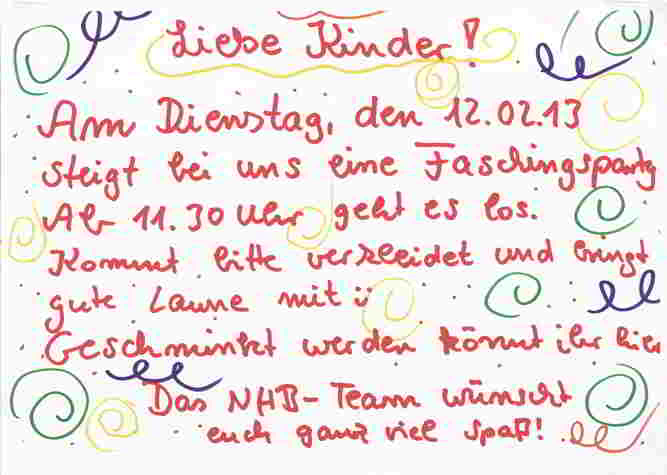 Liebe Kinder!
Am Dienstag, den 12.02.13
steigt bei uns eine Faschingsparty
Ab 11.30 Uhr geht es los.
Kommt bitte verkleidet und bringt
gute Laune mit ü
Geschminkt werden könnt ihr hier
Das NHB-Team wünscht
euch ganz viel Spaß!